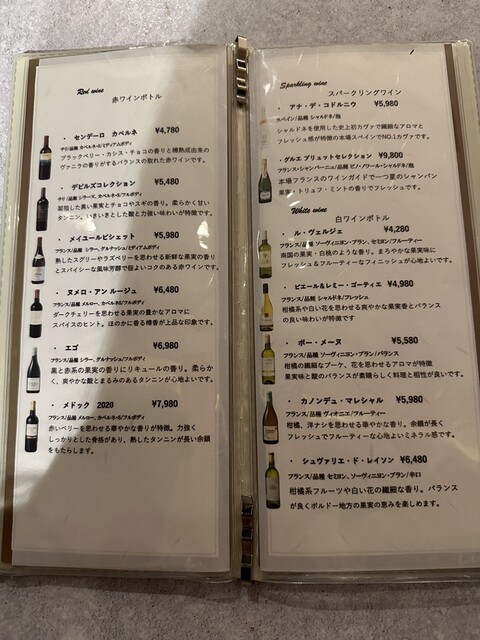 Red wine
赤ワインボトル
・ センデーロ カベルネ ¥4,780
チリ/品種 カベルネ・S/ミディアムボディ
ブラックベリー・カシス・チョコの香りと樽熟成由来の
ヴァニラの香りがするバランスの取れた赤ワインです。
・ デビルズコレクション ¥5,480
チリ/品種 シラーズ、カベルネ・S/フルボディ
凝縮した黒い果実とチョコやスギの香り。柔らかく甘い
タンニン。いきいきとした酸と力強い味わいが特徴です。
・ メイユールピシェット ¥5,980
フランス/品種 シラー、グルナッシュ/ミディアムボディ
熟したスグリーやラズベリーを思わせる新鮮な果実の香り
とスパイシーな風味芳醇で程よいコクのある赤ワインです。
・ ヌメロ・アン ルージュ ¥6,480
フランス/品種 メルロー、カベルネ・S/フルボディ
ダークチェリーを思わせる果実の豊かなアロマに
スパイスのヒント。ほのかに香る樽香が上品な印象です。
・ エゴ ¥6,980
フランス/品種 シラー、グルナッシュ/フルボディ
黒と赤系の果実の香りにリキュールの香り。柔らか
く、爽やかな酸とまるみのあるタンニンが心地よいです。
・ メドック 2020 ¥7,980
フランス/品種 メルロー、カベルネ・S/フルボディ
赤いベリーを思わせる華やかな香りが特徴。力強く
しっかりとした骨格があり、熟したタンニンが長い余韻
をもたらします。
Sparkling wine
スパークリングワイン
・ アナ・デ・コドルニウ ¥5,980
スペイン/品種 シャルドネ/泡
シャルドネを使用した史上初カヴァで繊細なアロマと
フレッシュ感が特徴の本場スペインでNO.1カヴァです。
・ グルエ ブリュットセレクション ¥9,800
フランス・シャンパーニュ/品種 ピノ・ノワール・シャルドネ/泡
本場フランスのワインガイドで一つ星のシャンパン
果実・トリュフ・ミントの香りでフレッシュです。
White wine
白ワインボトル
・ ル・ヴェルジェ ¥4,280
フランス/品種 ソーヴィニヨン・ブラン、セミヨン/フルーティー
南国の果実・白桃のような香り。まろやかな果実味に
フレッシュ&フルーティーなフィニッシュが心地よいです。
・ ピエール&レミー・ゴーティエ ¥4,980
フランス/品種 シャルドネ/フレッシュ
柑橘系や白い花を思わせる爽やかな果実香とバランス
の良い味わいが特徴です
・ ボー・メーヌ ¥5,580
フランス/品種 ソーヴィニヨン・ブラン/バランス
柑橘の繊細なブーケ、花を思わせるアロマが特徴
果実味と酸のバランスが素晴らしく料理と相性が良いです。
・ カノンデュ・マレシャル ¥5,980
フランス/品種 ヴィオニエ/フルーティー
柑橘、洋ナシを思わせる華やかな香り。余韻が長く
フレッシュでフルーティーな心地よいミネラル感です。
・ シュヴァリエ・ド・レイソン ¥6,480
フランス/品種 セミヨン、ソーヴィニヨン・ブラン/辛口
柑橘系フルーツや白い花の繊細な香り。バランス
が良くボルドー地方の果実の恵みを楽しめます。